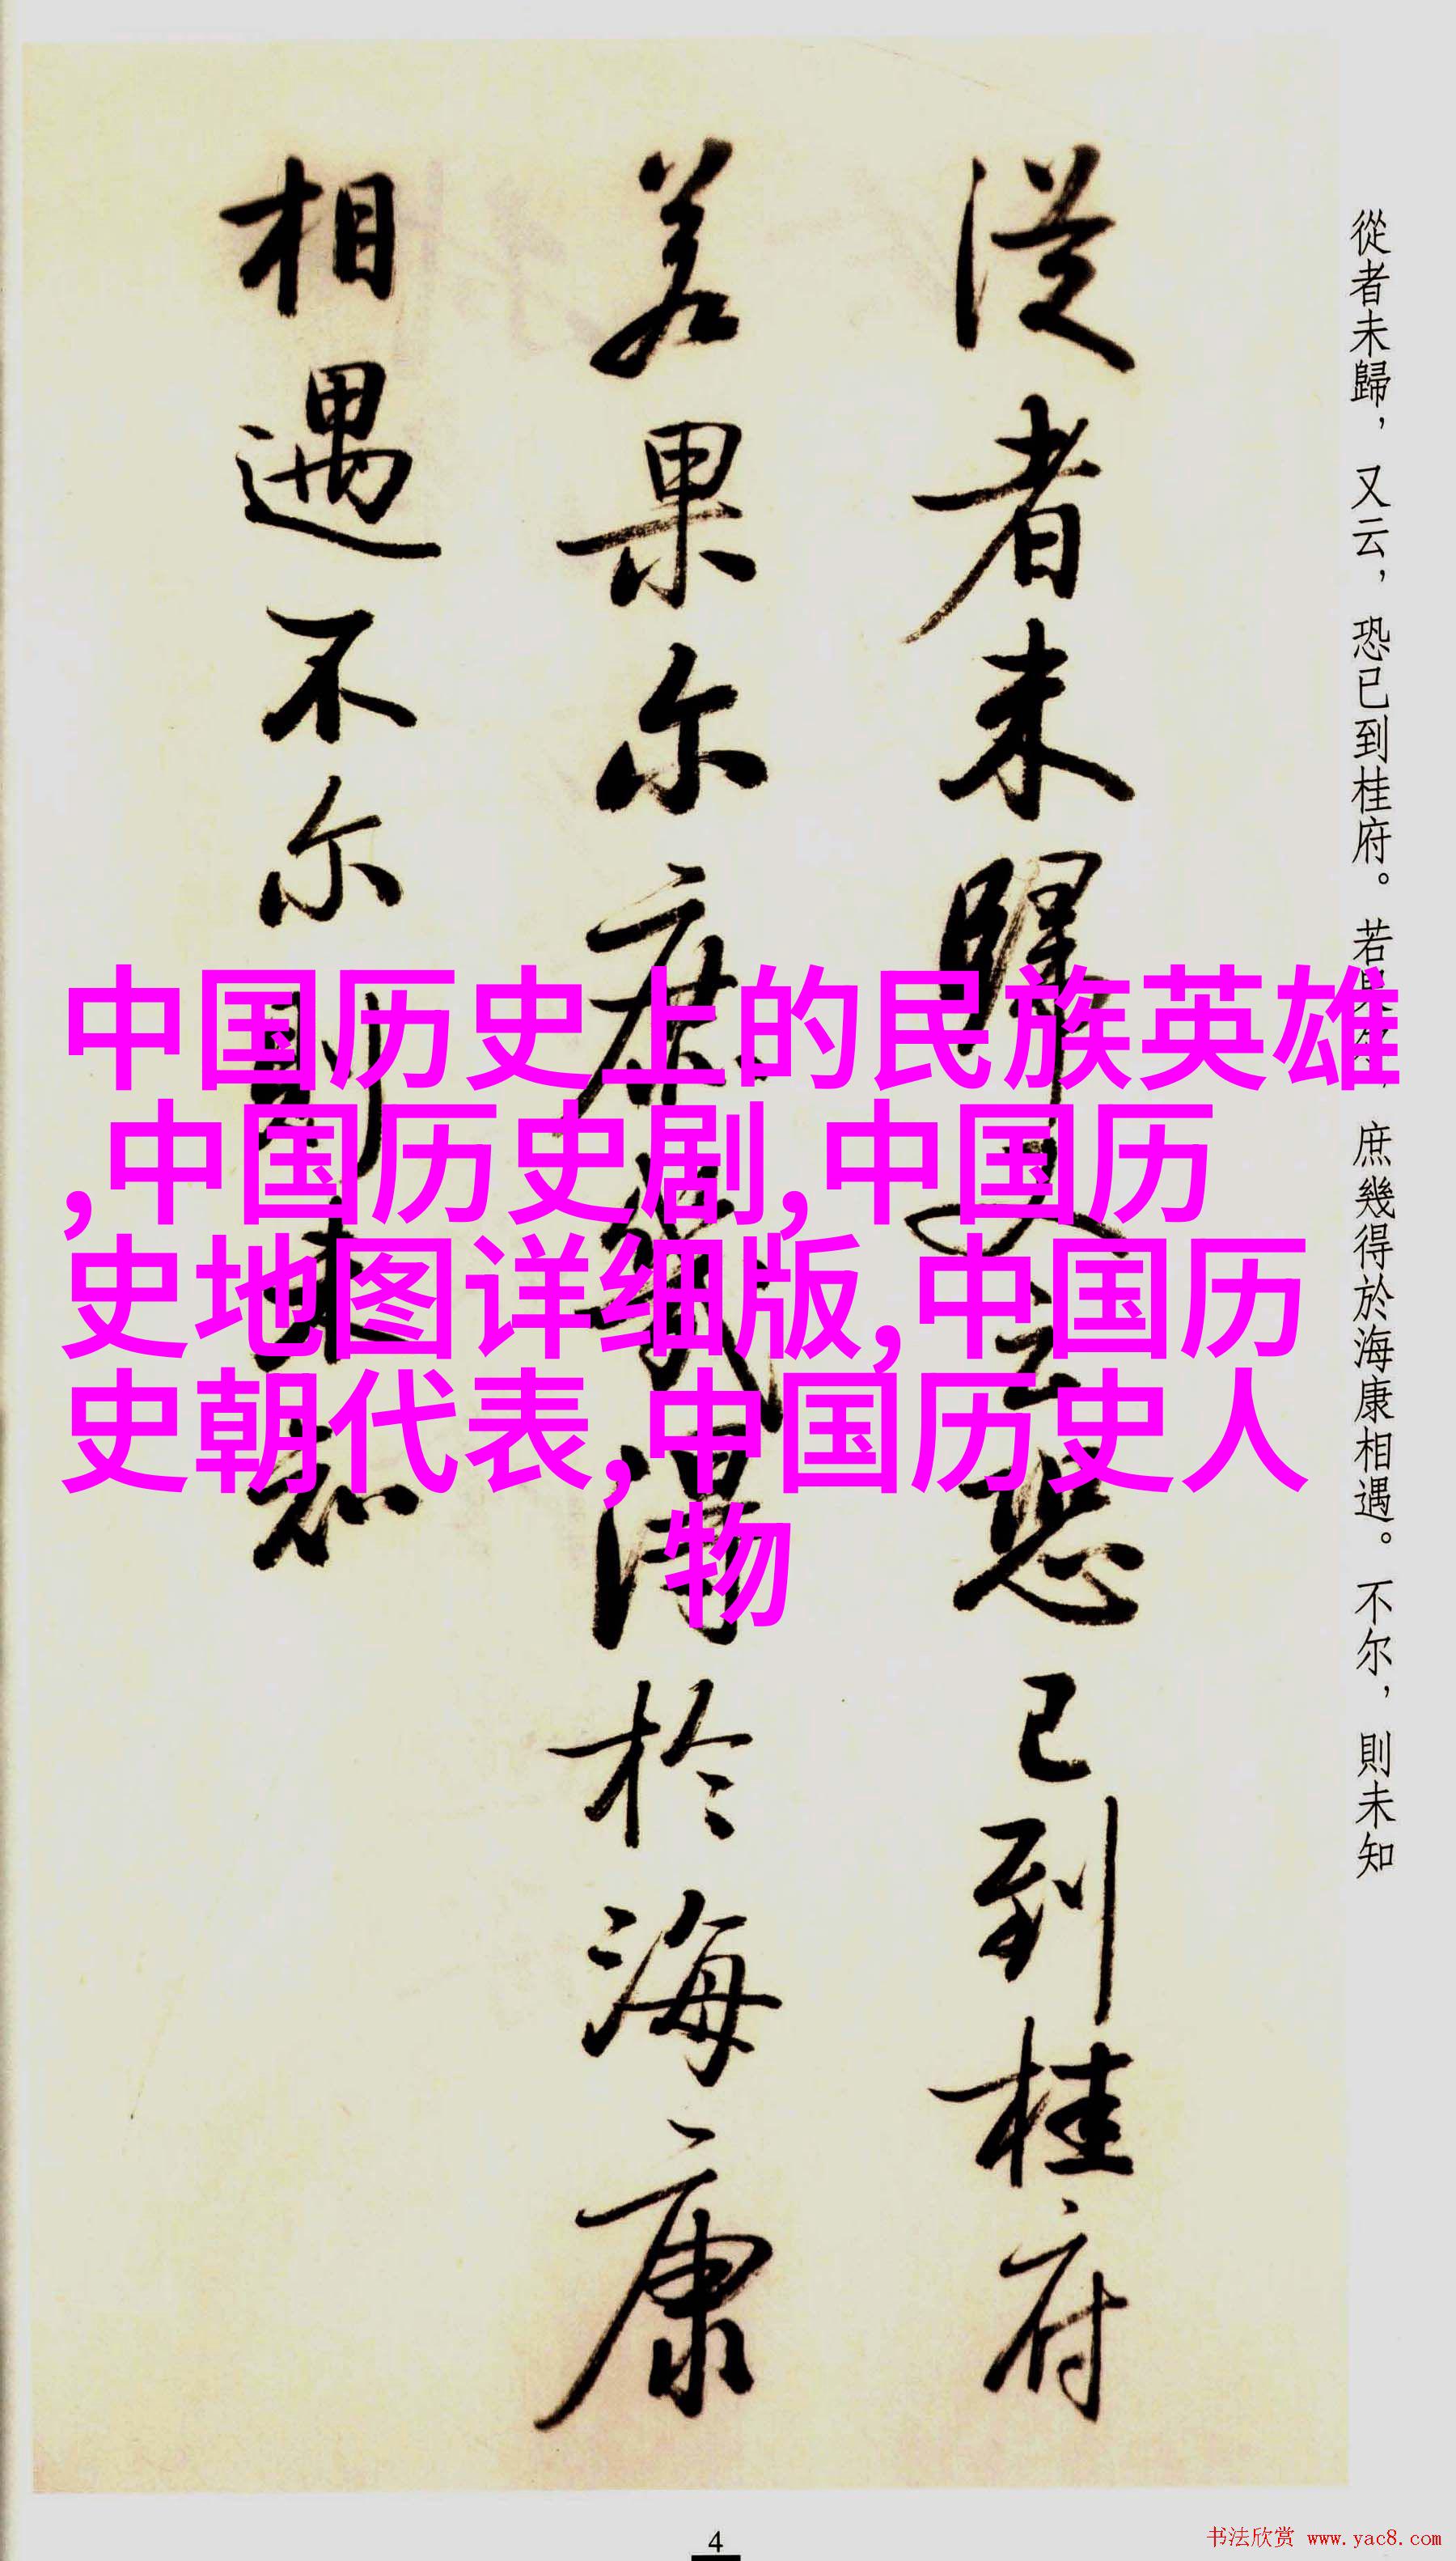 從者未歸，又云，恐已到桂府。若果尔，庶幾得於海康相遇。不尔，則未知
从者未歸又云恐已到桂府
若果尔庶幾得於海康
相遇不尔則未知
中国历史上的民族英雄
,中国历史剧,中国历
史地图详细版,中国历
史朝代表,中国历史人
物
4
书法欣赏 www.yac8.com